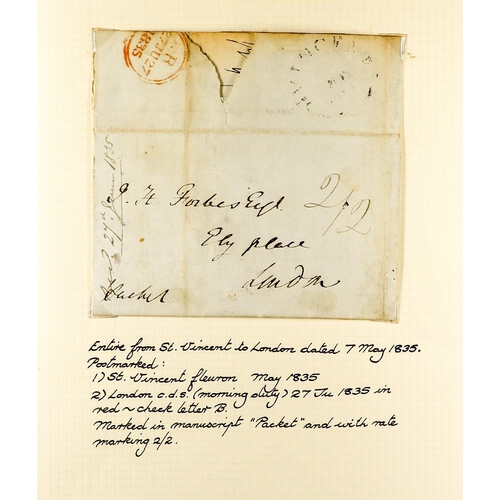 R
27 JU 27
1835
Recd 27th June 1835
J. H. Forbes Esqr.
2/2
Ely place
London
Packet
Entire from St. Vincent to London dated 7 May 1835.
Postmarked:
1) St. Vincent fleuron May 1835
2) London c.d.s. (morning duty) 27 Ju 1835 in
red ~ check letter B.
Marked in manuscript "Packet" and with rate
marking 2/2.